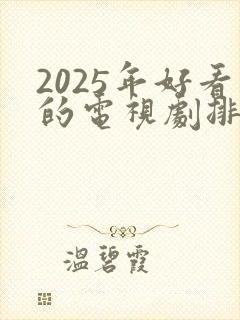 2025年好看
的電視劇排
溫碧霞